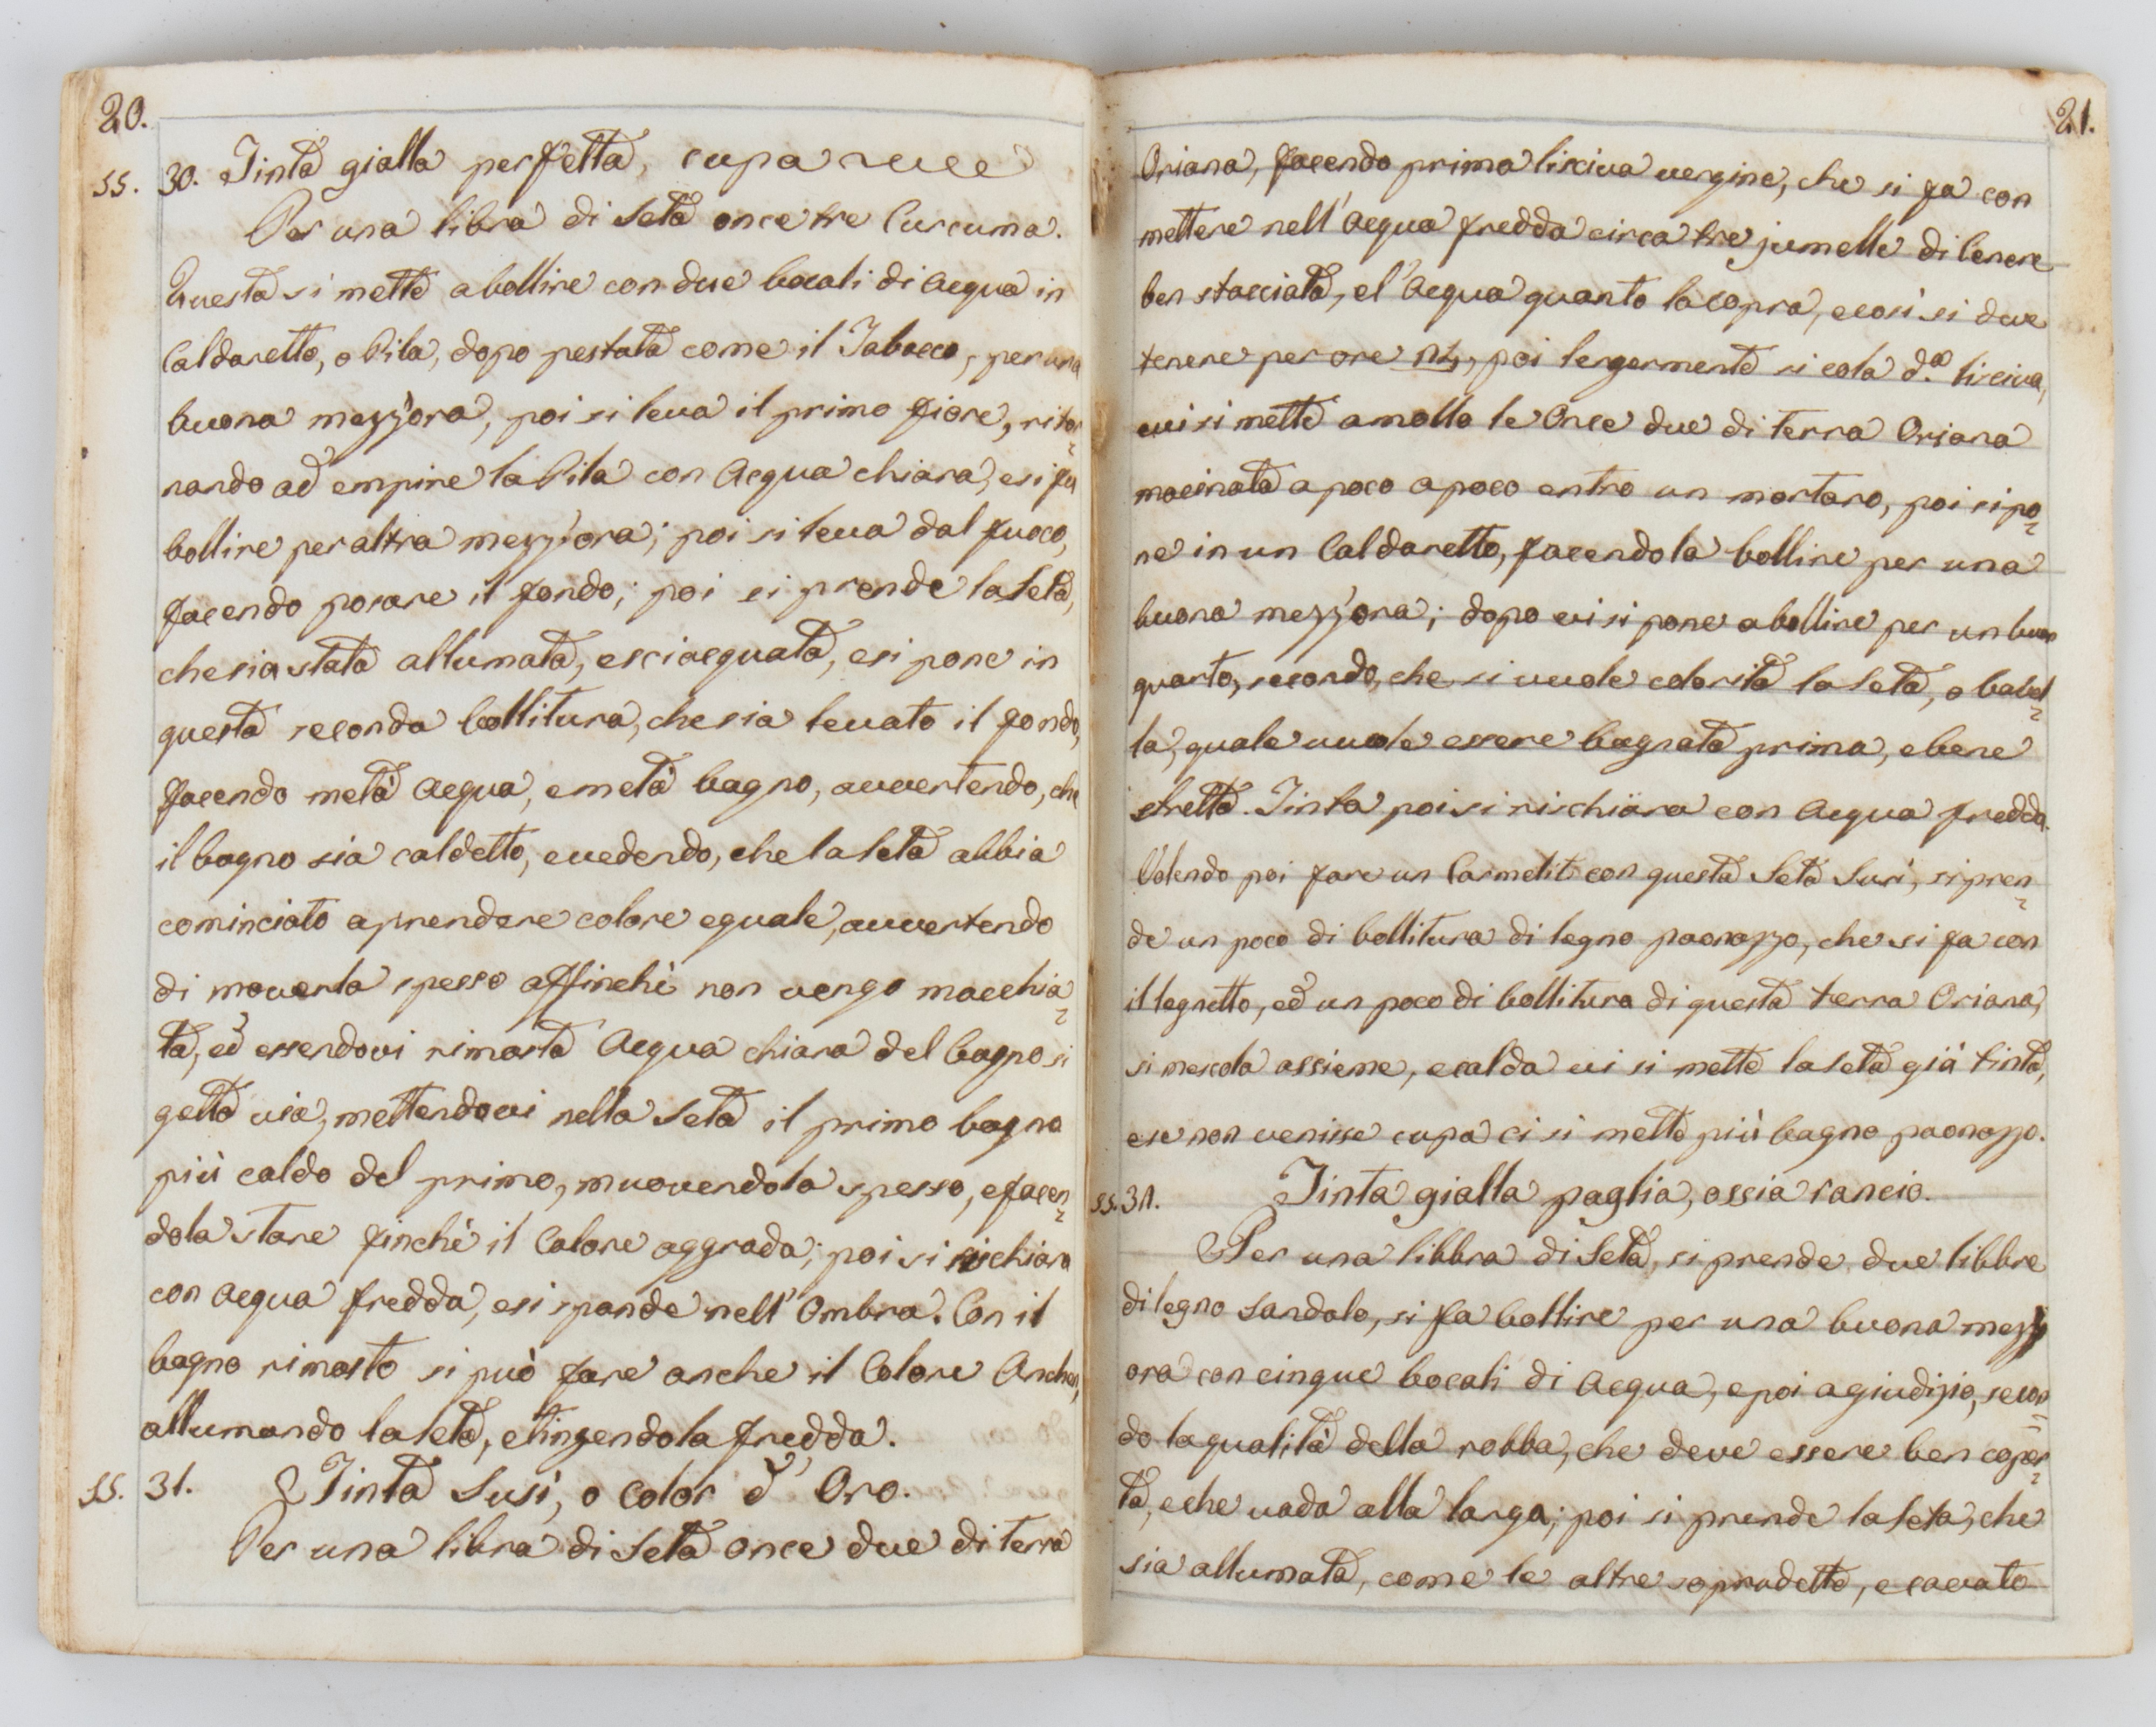 20.
§§. 30. Tinta gialla perfetta, cupa
Per una libra di Seta once tre Curcuma.
Questa si mette a bollire con due bocali di Acqua in
Caldaretto, o Pila, dopo pestata come il Tabacco, per una
buona mezz'ora, poi si leva il primo fiore, ritor=
nando ad empire la Pila con Acqua chiara, e si fa
bollire per altra mezz'ora; poi si leva dal fuoco,
facendo posare il fondo; poi si prende la Seta,
che sia stata allumata, e sciacquata, e si pone in
questa seconda bollitura, che sia levato il fondo,
facendo metà Acqua, e metà bagno, avvertendo, che
il bagno sia caldetto, e vedendo, che la Seta abbia
cominciato a prendere colore eguale, avvertendo
di moverla spesso affinchè non venga macchia=
ta, ed essendovi rimasta Acqua chiara del bagno si
getta via, mettendovi nella Seta il primo bagno
più caldo del primo, muovendola spesso, e facen=
dola stare finchè il Colore aggrada; poi si rischiara
con acqua fredda, e si spande nell'Ombra. Con il
bagno rimasto si può fare anche il Colore
allumando la Seta, e tingendola fredda.
§§. 31. Tinta Susì, o color d'Oro.
Per una libra di Seta once due di terra
21.
Oriana, facendo prima lisciva vergine, che si fa con
mettere nell'Acqua fredda circa tre jumelle di Cenere
ben stacciata, e l'Acqua quanto la copra, e così si deve
tenere per ore 24, poi legermente si cola d.a lisciva,
e vi si mette a mollo le Once due di terra Oriana
macinata a poco a poco entro un mortaro, poi si po=
ne in un Caldaretto, facendola bollire per una
buona mezz'ora; dopo vi si pone a bollire per un buon
quarto, secondo, che si vuole colorita la Seta, o bavel=
la, quale vuole essere bagnata prima, e bene
stretta. Tinta poi si rischiara con Acqua fredda.
Volendo poi fare un Carmelit con questa Seta Susì, si pren=
de un poco di bollitura di legno paonazzo, che si fa con
il legnetto, ed un poco di bollitura di questa terra Oriana,
si mescola assieme, e calda vi si mette la Seta già tinta,
e se non venisse cupa ci si mette più bagno paonazzo.
§§. 31. Tinta gialla paglia, ossia rancio.
Per una libbra di Seta, si prende due libbre
di legno Sandalo, si fa bollire per una buona mezz
ora con cinque bocali di Acqua, e poi a giudizio, secon=
do la qualità della robba, che deve essere ben coper=
ta, e che vada alla larga; poi si prende la Seta, che
sia allumata, come le altre sopradette, e cavato